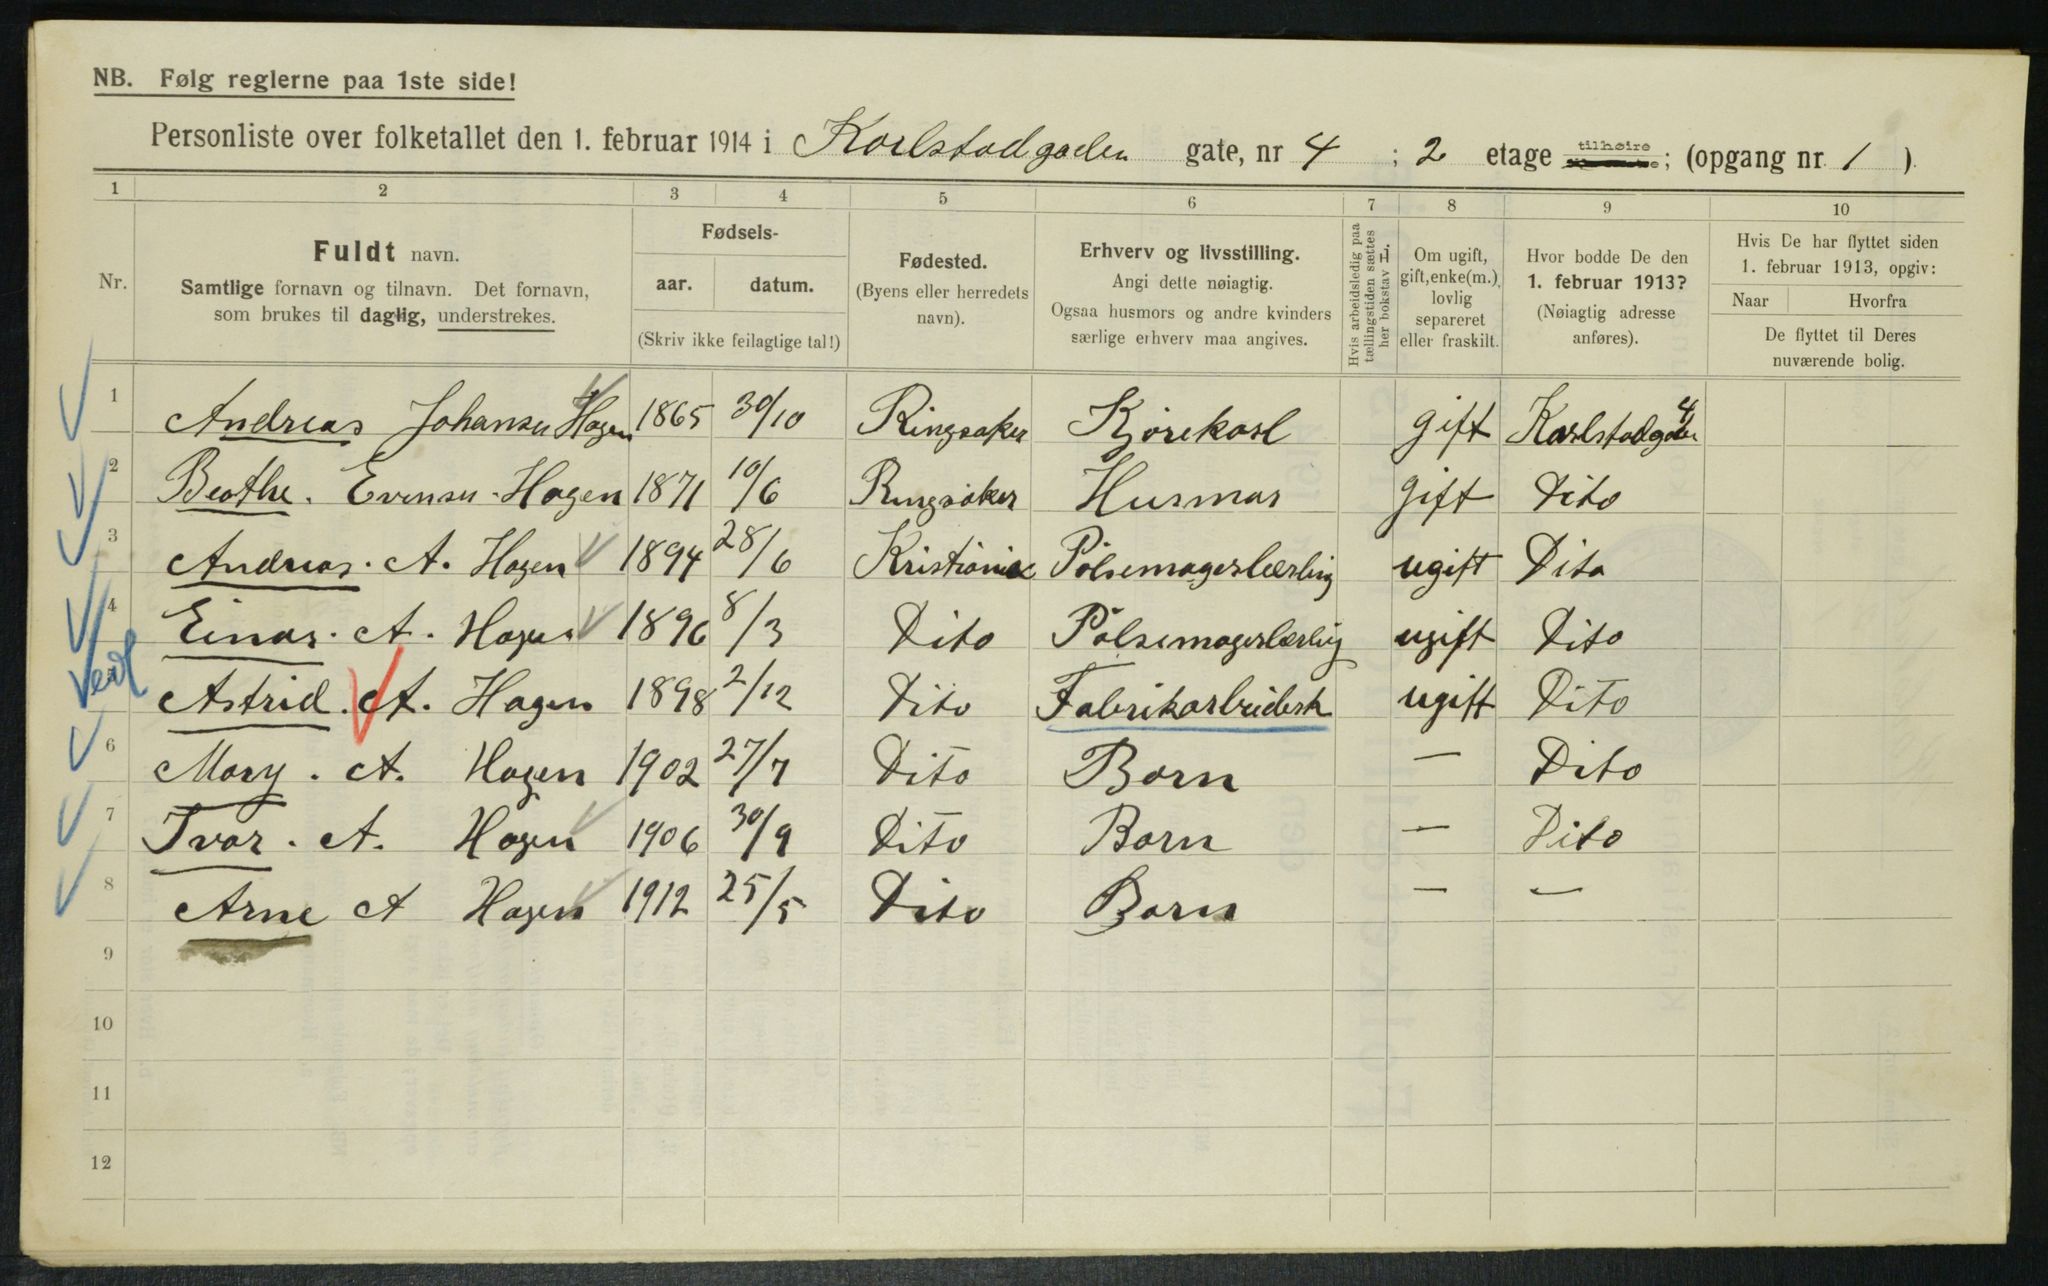 NB. Følg reglerne paa 1ste side!
Personliste over folketallet den 1. februar 1914 i Karlstadgaden gate, nr 4 ; 2 etage tilhøire ; (opgang nr. 1 ).
1 2 3 4 5 6 7 8 9 10
Nr.
Fuldt navn.
Samtlige fornavn og tilnavn. Det fornavn,
som brukes til daglig, understrekes.
Fødsels-
aar. datum.
(Skriv ikke feilagtige tal!)
Fødested.
(Byens eller herredets
navn).
Erhverv og livsstilling.
Angi dette nøiagtig.
Ogsaa husmors og andre kvinders
særlige erhverv maa angives.
Hvis arbeidsledig paa
tællingstiden sættes
her bokstav L.
Om ugift,
gift, enke(m.),
lovlig
separeret
eller fraskilt.
Hvor bodde De den
1. februar 1913?
(Nøiagtig adresse
anføres).
Hvis De har flyttet siden
1. februar 1913, opgiv:
Naar Hvorfra
De flyttet til Deres
nuværende bolig.
1 Andreas Johansen Hagen 1865 30/10 Ringsaker Kjørekarl gift Karlstadgaden 4
2 Beathe. Evensen. Hagen 1871 10/6 Ringsaker Husmor gift Dito
3 Andreas. A. Hagen 1894 28/6 Kristiania Pølsemagerlærling ugift Dito
4 Einar. A. Hagen 1896 8/3 Dito Pølsemagerlærling ugift Dito
Astrid. A. Hagen 1898 2/12 Dito Fabrikarbeidersk ugift Dito
6 Mary. A. Hagen 1902 27/7 Dito Barn — Dito
7 Ivar. A. Hagen 1906 30/9 Dito Barn — Dito
8 Arne A Hagen 1912 25/5 Dito Barn — —
9
10
11
12